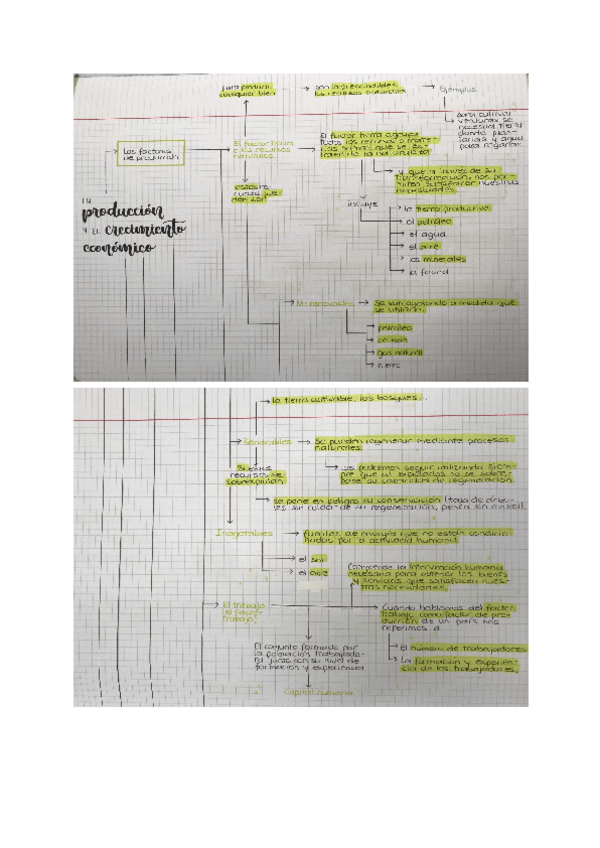 para producir
cualquier bien
son imprescindibles
los recursos naturales
Ejemplos
para cultivar
verduras se
necesita tierra
donde plan-
tarlas y agua
para regarlas.
Los factores
de producción
El factor tierra
o los recursos
naturales
El factor tierra agrupa
todos los recursos o mate-
rias primas que se ex-
traen de la naturaleza
y que a través de su
transformación, nos per-
miten satisfacer nuestras
necesidades.
estos re-
cursos pue-
den ser
incluye
la tierra productiva
el petróleo
el agua
el aire
los minerales
la fauna
la
producción
y el crecimiento
económico
No renovables
Se van agotando a medida que
se utilizan.
petróleo
carbón
gas natural
hierro
la tierra cultivable, los bosques...
Renovables
Se pueden regenerar mediante procesos
naturales
Si estos
recursos se
sobreexplotan
Los podemos seguir utilizando siem-
pre que al explotarlos no se sobre-
pase su capacidad de regeneración.
se pone en peligro su conservación (tala de árbo-
les sin cuidar de su regeneración, pesca sin control).
Inagotables
Fuentes de energía que no están condicio-
nadas por la actividad humana
el sol
el aire
El trabajo
(el factor
trabajo)
Comprende la intervención humana
necesaria para obtener los bienes
y servicios que satisfacen nues-
tras necesidades.
Cuando hablamos del factor
trabajo como factor de pro-
ducción de un país nos
referimos a
El número de trabajadores
La formación y experien-
cia de los trabajadores.
El conjunto formado por
la población trabajado-
ra junto con su nivel de
formación y experiencia
Capital humano